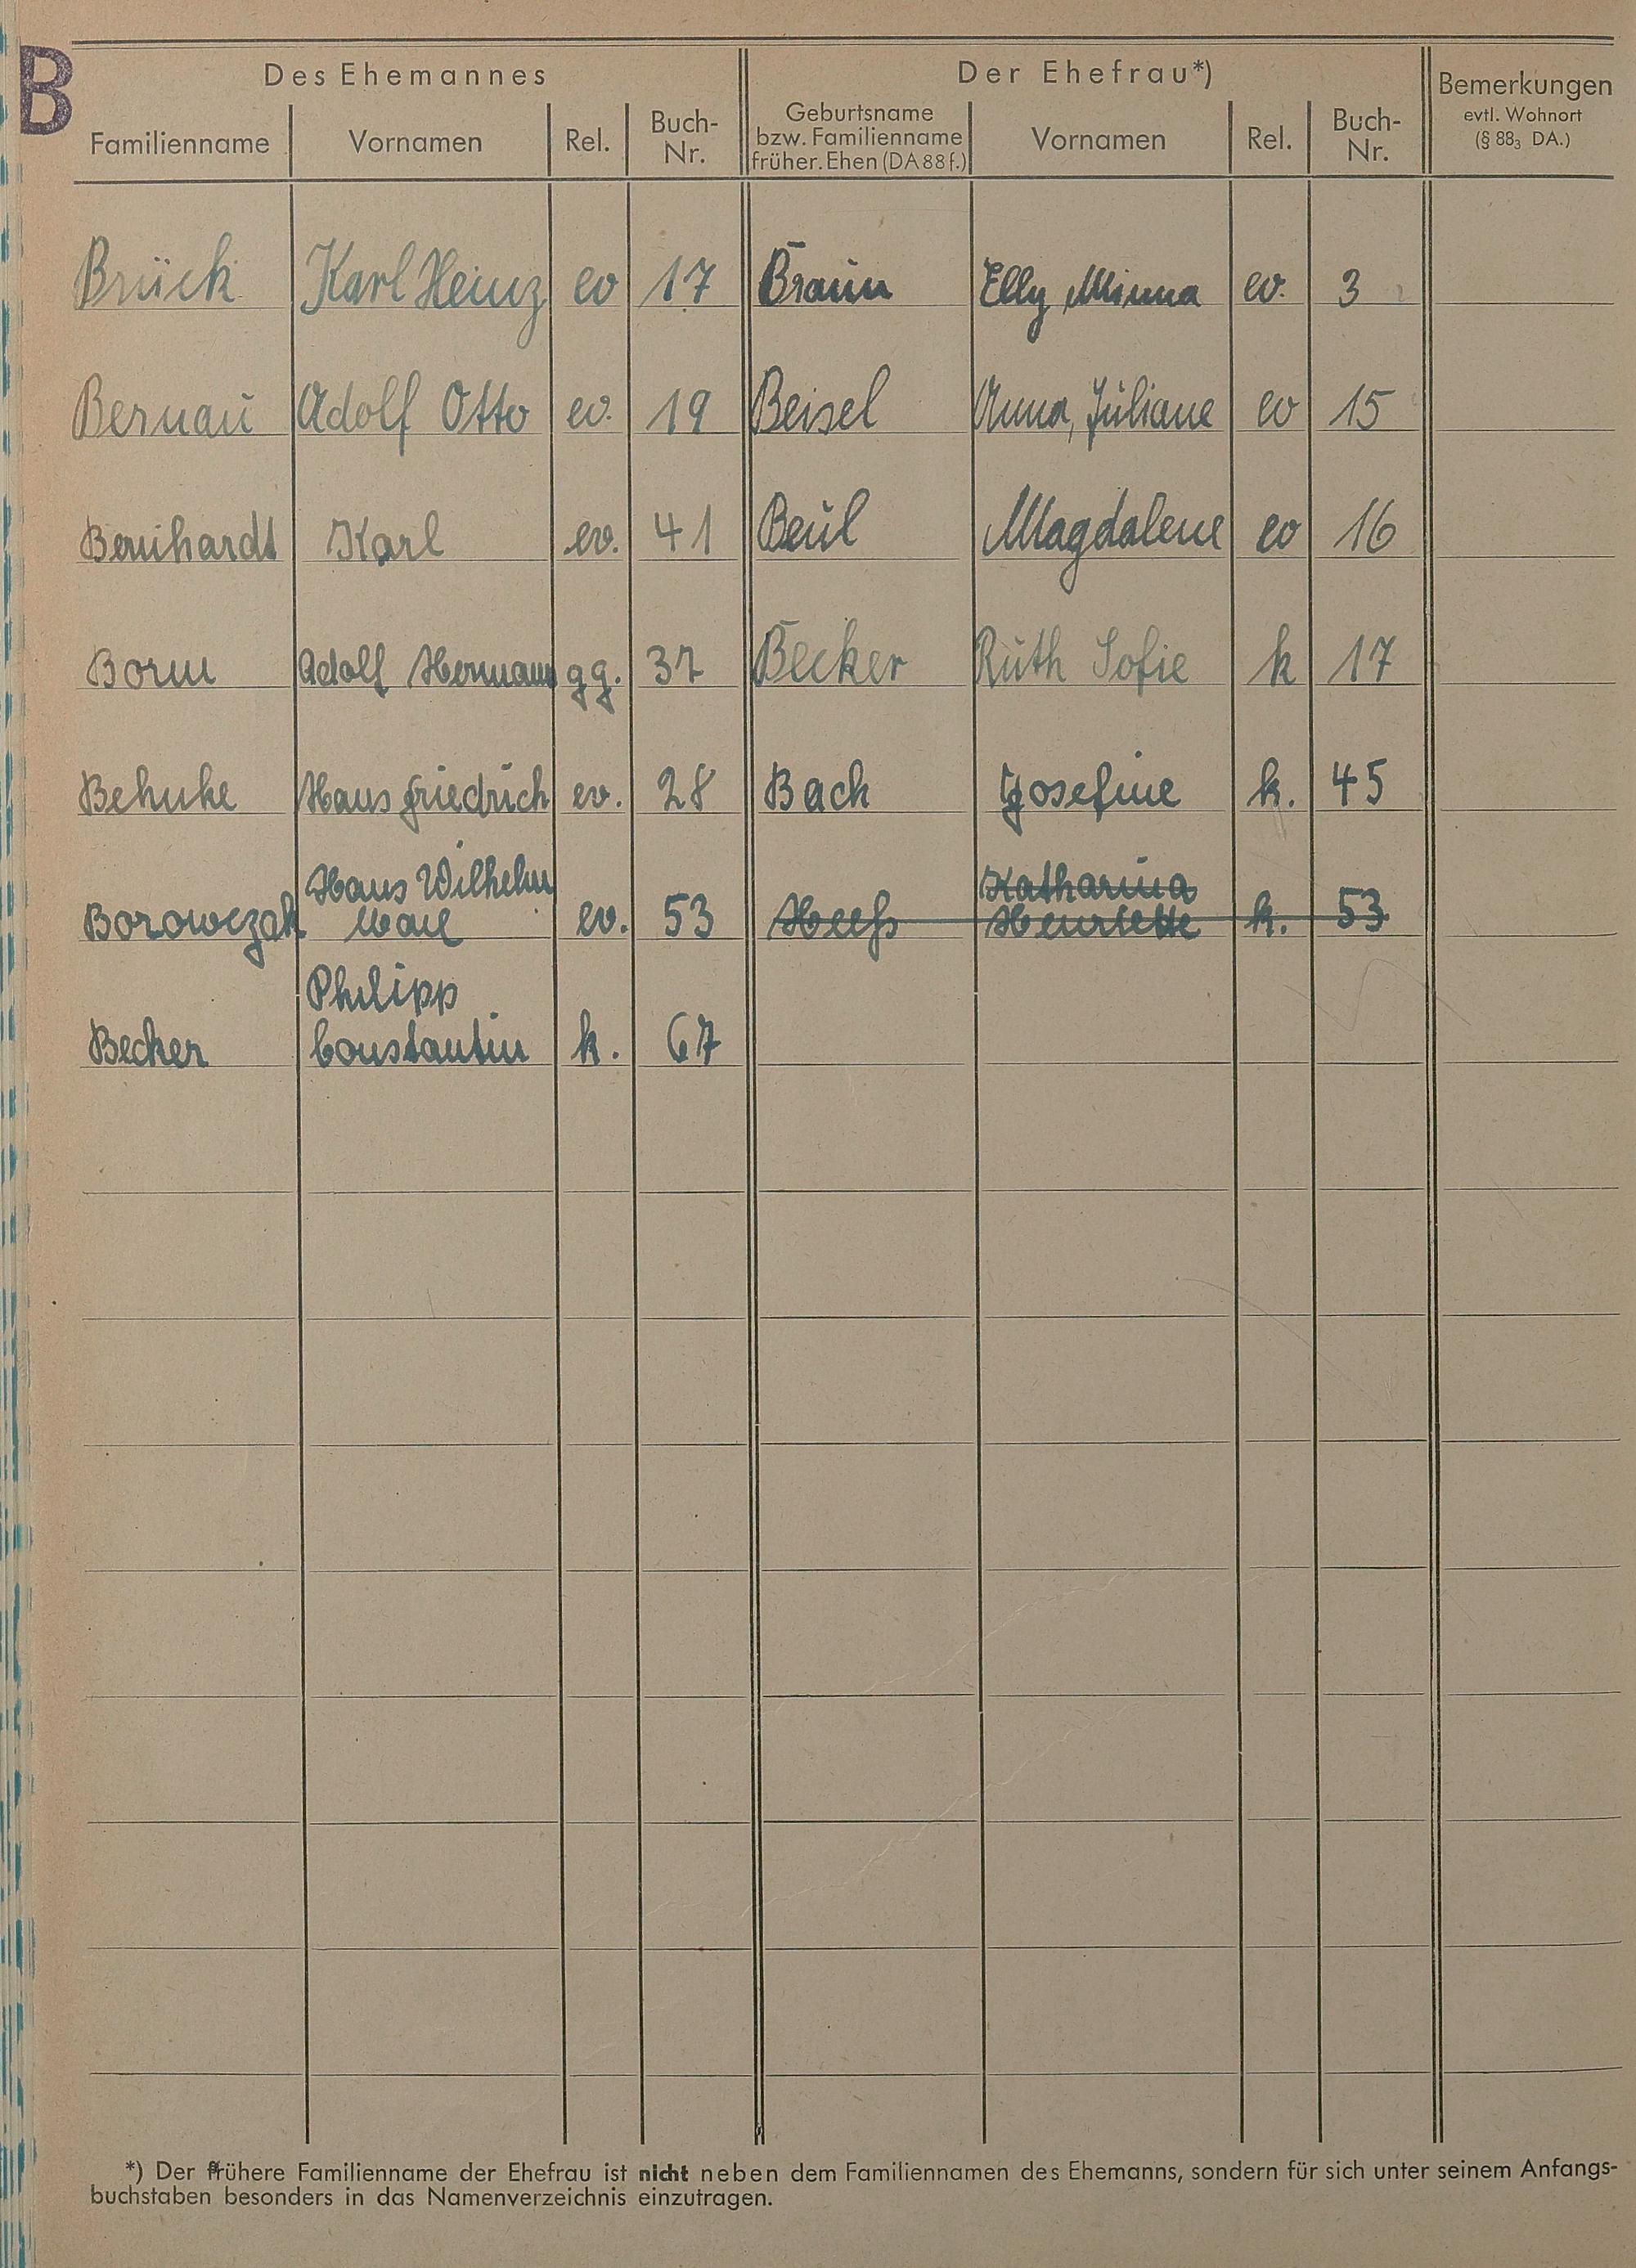 B
Des Ehemannes Der Ehefrau*) Bemerkungen
evtl. Wohnort
(§ 88₃ DA.)
Familienname Vornamen Rel. Buch-Nr. Geburtsname bzw. Familienname früher. Ehen (DA 88 f.) Vornamen Rel. Buch-Nr.
Brück Karl Heinz ev 17 Braun Elly Minna ev. 3
Bernau Adolf Otto ev. 19 Beisel Anna, Juliane ev 15
Bernhardt Karl ev. 41 Beul Magdalene ev 16
Born Adolf Hermann gg. 37 Becker Ruth Sofie k 17
Behnke Hans Friedrich ev. 28 Bach Josefine k. 45
Hans Wilhelm Katharina
Borowczak ev. 53 Heeß Henriette k. 53
Philipp
Becker Constantin k. 67
*) Der frühere Familienname der Ehefrau ist nicht neben dem Familiennamen des Ehemanns, sondern für sich unter seinem Anfangs-
buchstaben besonders in das Namenverzeichnis einzutragen.